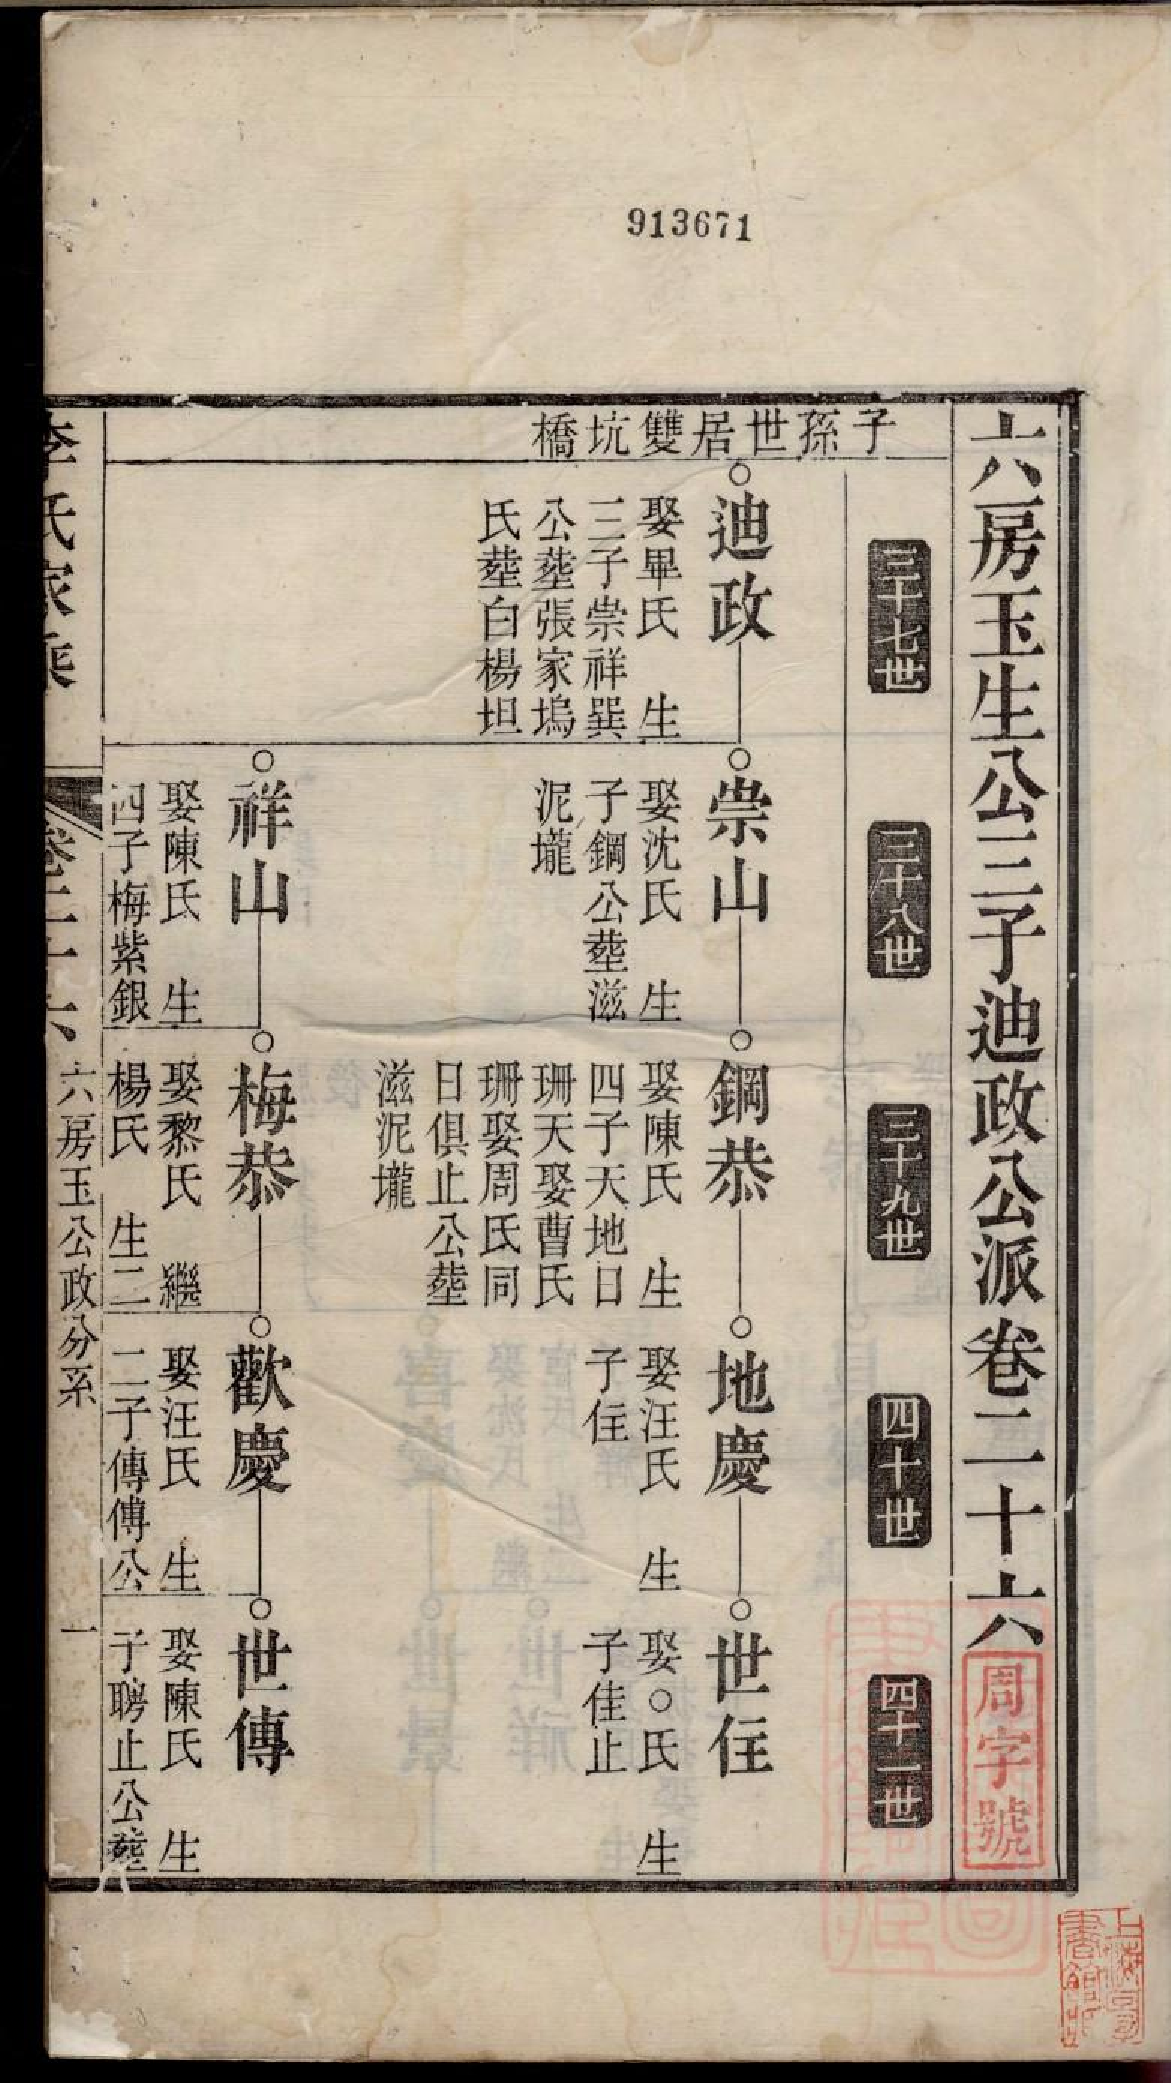 913671
六房玉生公三子迪政公派卷二十六
周字號
三十七世
三十八世
三十九世
四十世
四十一世
子孫世居雙坑橋
迪政
娶畢氏 生
三子崇祥巽
公塟張家塢
氏塟白楊坦
崇山
娶沈氏 生
子鋼公塟滋
泥壠
鋼恭
娶陳氏 生
四子天地日
珊天娶曹氏
珊娶周氏同
日俱止公塟
滋泥壠
地慶
娶汪氏 生
子住
世住
娶○氏 生
子佳止
祥山
娶陳氏 生
四子梅紫銀
梅恭
娶黎氏 繼
楊氏 生二
歡慶
娶汪氏 生
二子傳傳公
世傳
娶陳氏 生
子聘止公塟
李氏家乘
卷二十六
六房玉公政分系
一
上海圖書館藏